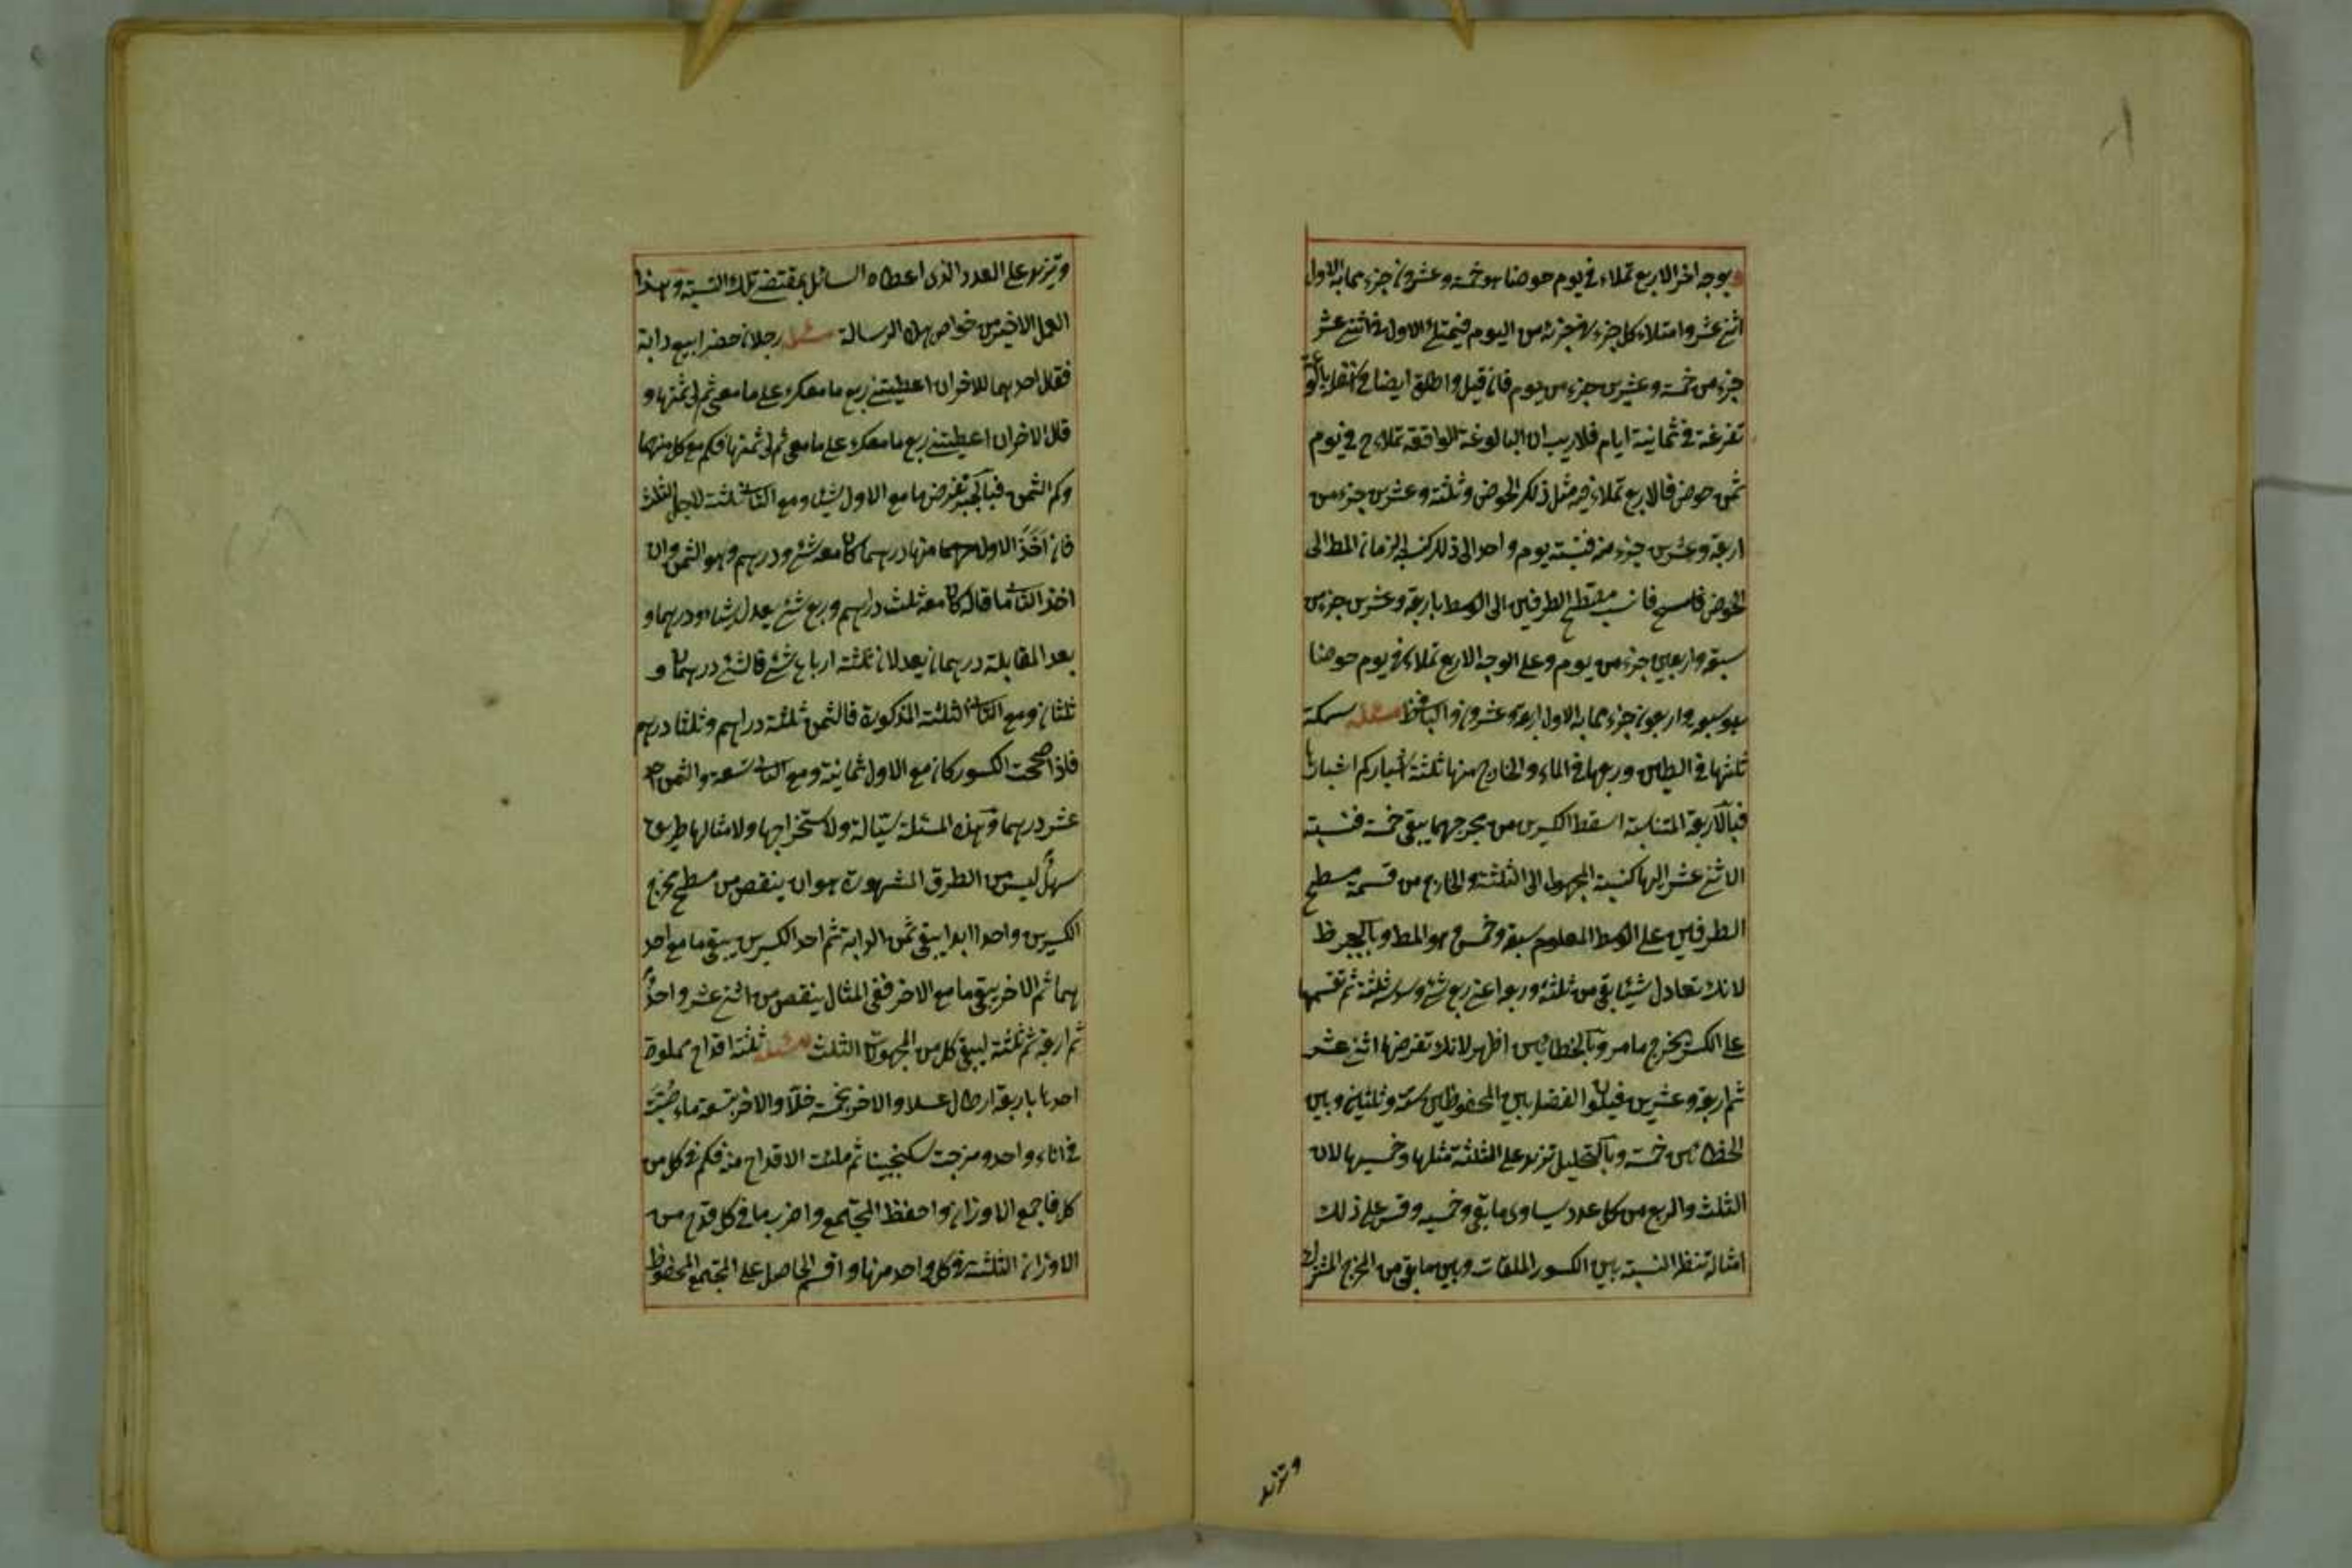 وبوجه اخر الاربع تملاء في يوم حوضا هو خمسة وعشرون جزء مما به الاول
اثني عشر وامتلاء كل جزء في جزئه من اليوم فيمتلئ الاول في اثني عشر
جزء من خمسة وعشرين جزء من يوم فان قيل واطلق ايضا في اسفله بالوعة
تفرغه في ثمانية ايام فلا ريب ان البالوعة الواقفة تملاء ح في يوم
ثمن حوض فالاربع تملاء فيه مثل ذلك الحوض وثلثة وعشرين جزء من
اربعة وعشرين جزء منه فنسبة يوم واحد الى ذلك كنسبة الزمان المط الى
الحوض فانسب مسطح الطرفين الى الوسط باربعة وعشرين جزء من
سبعة واربعين جزء من يوم وعلى الوجه الاربع تملاء في يوم حوضا
هو سبعة واربعون جزء مما به الاول اربعة وعشرون والباقي ظ مسئلة سمكة
ثلثها في الطين وربعها في الماء والخارج منها ثلثة اشبار كم اشبارها
فبالاربعة المتناسبة اسقط الكسرين من مخرجهما يبقى خمسة فنسبة
الاثني عشر اليها كنسبة المجهول الى الثلثة والخارج من قسمة مسطح
الطرفين على الوسط المعلوم سبعة وخمس وهو المط وبالجبر ظ
لانك تعادل شيئا بقي من ثلثه وربعه اعني ربع شئ وسدسه ثلثة ثم تقسمها
على الكسر يخرج ما مر وبالخطائين اظهر لانك تفرضها اثني عشر
ثم اربعة وعشرين فيكون الفضل بين المحفوظين ستة وثلثين وبين
الخطائين خمسة وبالتحليل تزيد على الثلثة مثلها وخمسيها لان
الثلث والربع من كل عدد يساوى ما بقي وخمسيه وقس على ذلك
امثاله تنظر النسبة بين الكسور الملقات وبين ما بقي من المخرج المشترك
وتزيد
وتزيد على العدد الذى اعطاه السائل بمقتضى تلك النسبة وهذا
العمل الاخير من خواص هذه الرسالة مسئلة رجلان حضرا بيع دابة
فقال احدهما للاخر ان اعطيتني ربع ما معك على ما معي ثم لى ثمنها و
قال الاخر ان اعطيتني ربع ما معك على ما معي ثم لى ثمنها فكم مع كل منهما
وكم الثمن فبالجبر نفرض ما مع الاول شيئا ومع الثاني ثلثة لاجل الثلث
فان اخذ الاول منها درهما كان معه شئ ودرهم وهو الثمن وان
اخذ الثاني ما قاله كان معه ثلث دراهم وربع شئ يعدل شيئا ودرهما و
بعد المقابلة درهمان يعدلان ثلثة ارباع شئ فالشئ درهمان و
ثلثان ومع الثاني الثلثة المذكورة فالثمن ثلثة دراهم وثلثا درهم
فاذا صححت الكسور كان مع الاول ثمانية ومع الثاني تسعة والثمن احد
عشر درهما وهذه المسئلة سيالة ولاستخراجها ولامثالها طريق
سهل ليس من الطرق المشهورة هو ان ينقص من مسطح مخرج
الكسرين واحدا ابدا يبقى ثمن الدابة ثم احد الكسرين يبقى ما مع احد
هما ثم الاخر يبقى ما مع الاخر ففي المثال ينقص من اثني عشر واحدا
ثم اربعة ثم ثلثة ليبقى كل من المجهولات الثلث مسئلة ثلثة اقداح مملوة
احدها باربعة ارطال عسلا والاخر بخمسة خلا والاخر بتسعة ماء صبت
في اناء واحد ومزجت سكنجبينا ثم ملئت الاقداح منه فكم في كل من
كل فاجمع الاوزان واحفظ المجتمع واضرب ما في كل قدح من
الاوزان الثلثة في كل واحد منها واقسم الحاصل على المجتمع المحفوظ